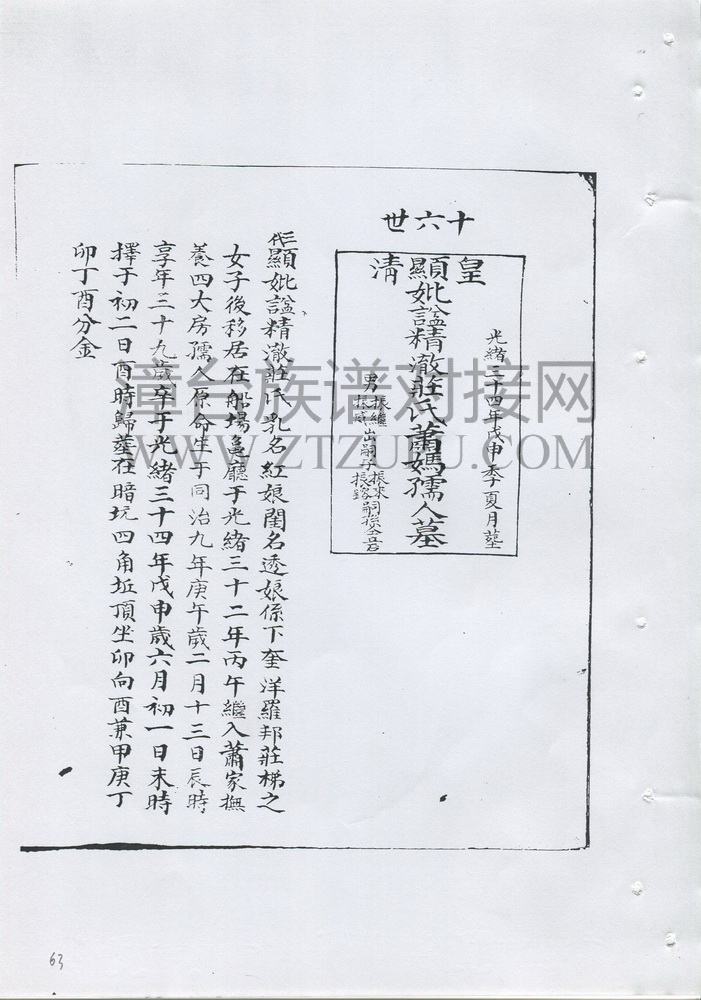 十六世
皇清
光緒三十四年戊申季夏月塟
顯妣諡精澈莊氏蕭媽孺人墓
男
振繼
振
出嗣子
振來
振
嗣孫
顯妣諡精澈莊氏乳名紅娘閨名透娘係下奎洋羅邦莊梯之
女子後移居在船場龜廳于光緒三十二年丙午繼入蕭家撫
養四大房孺人原命生于同治九年庚午歲二月十三日辰時
享年三十九歲卒于光緒三十四年戊申歲六月初一日未時
擇于初二日酉時歸塟在暗坑四角坵頂坐卯向酉兼甲庚丁
卯丁酉分金
漳台族谱对接网
WWW.ZTZUPU.COM
63